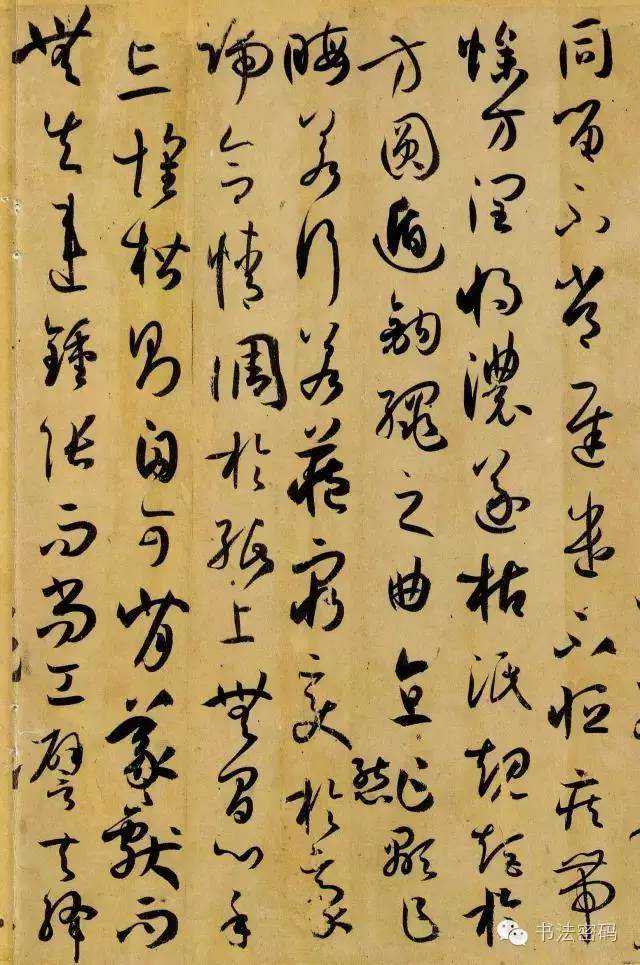 同留不常遲遣不恒疾帶
燥方潤將濃遂枯泯規矩於
方圓遁鉤繩之曲直乍顯乍
晦若行若藏窮變態於豪
端合情調於紙上無間心手
忘懷楷則自可背羲獻而
無失違鍾張而尚工譬夫絳
书法密码